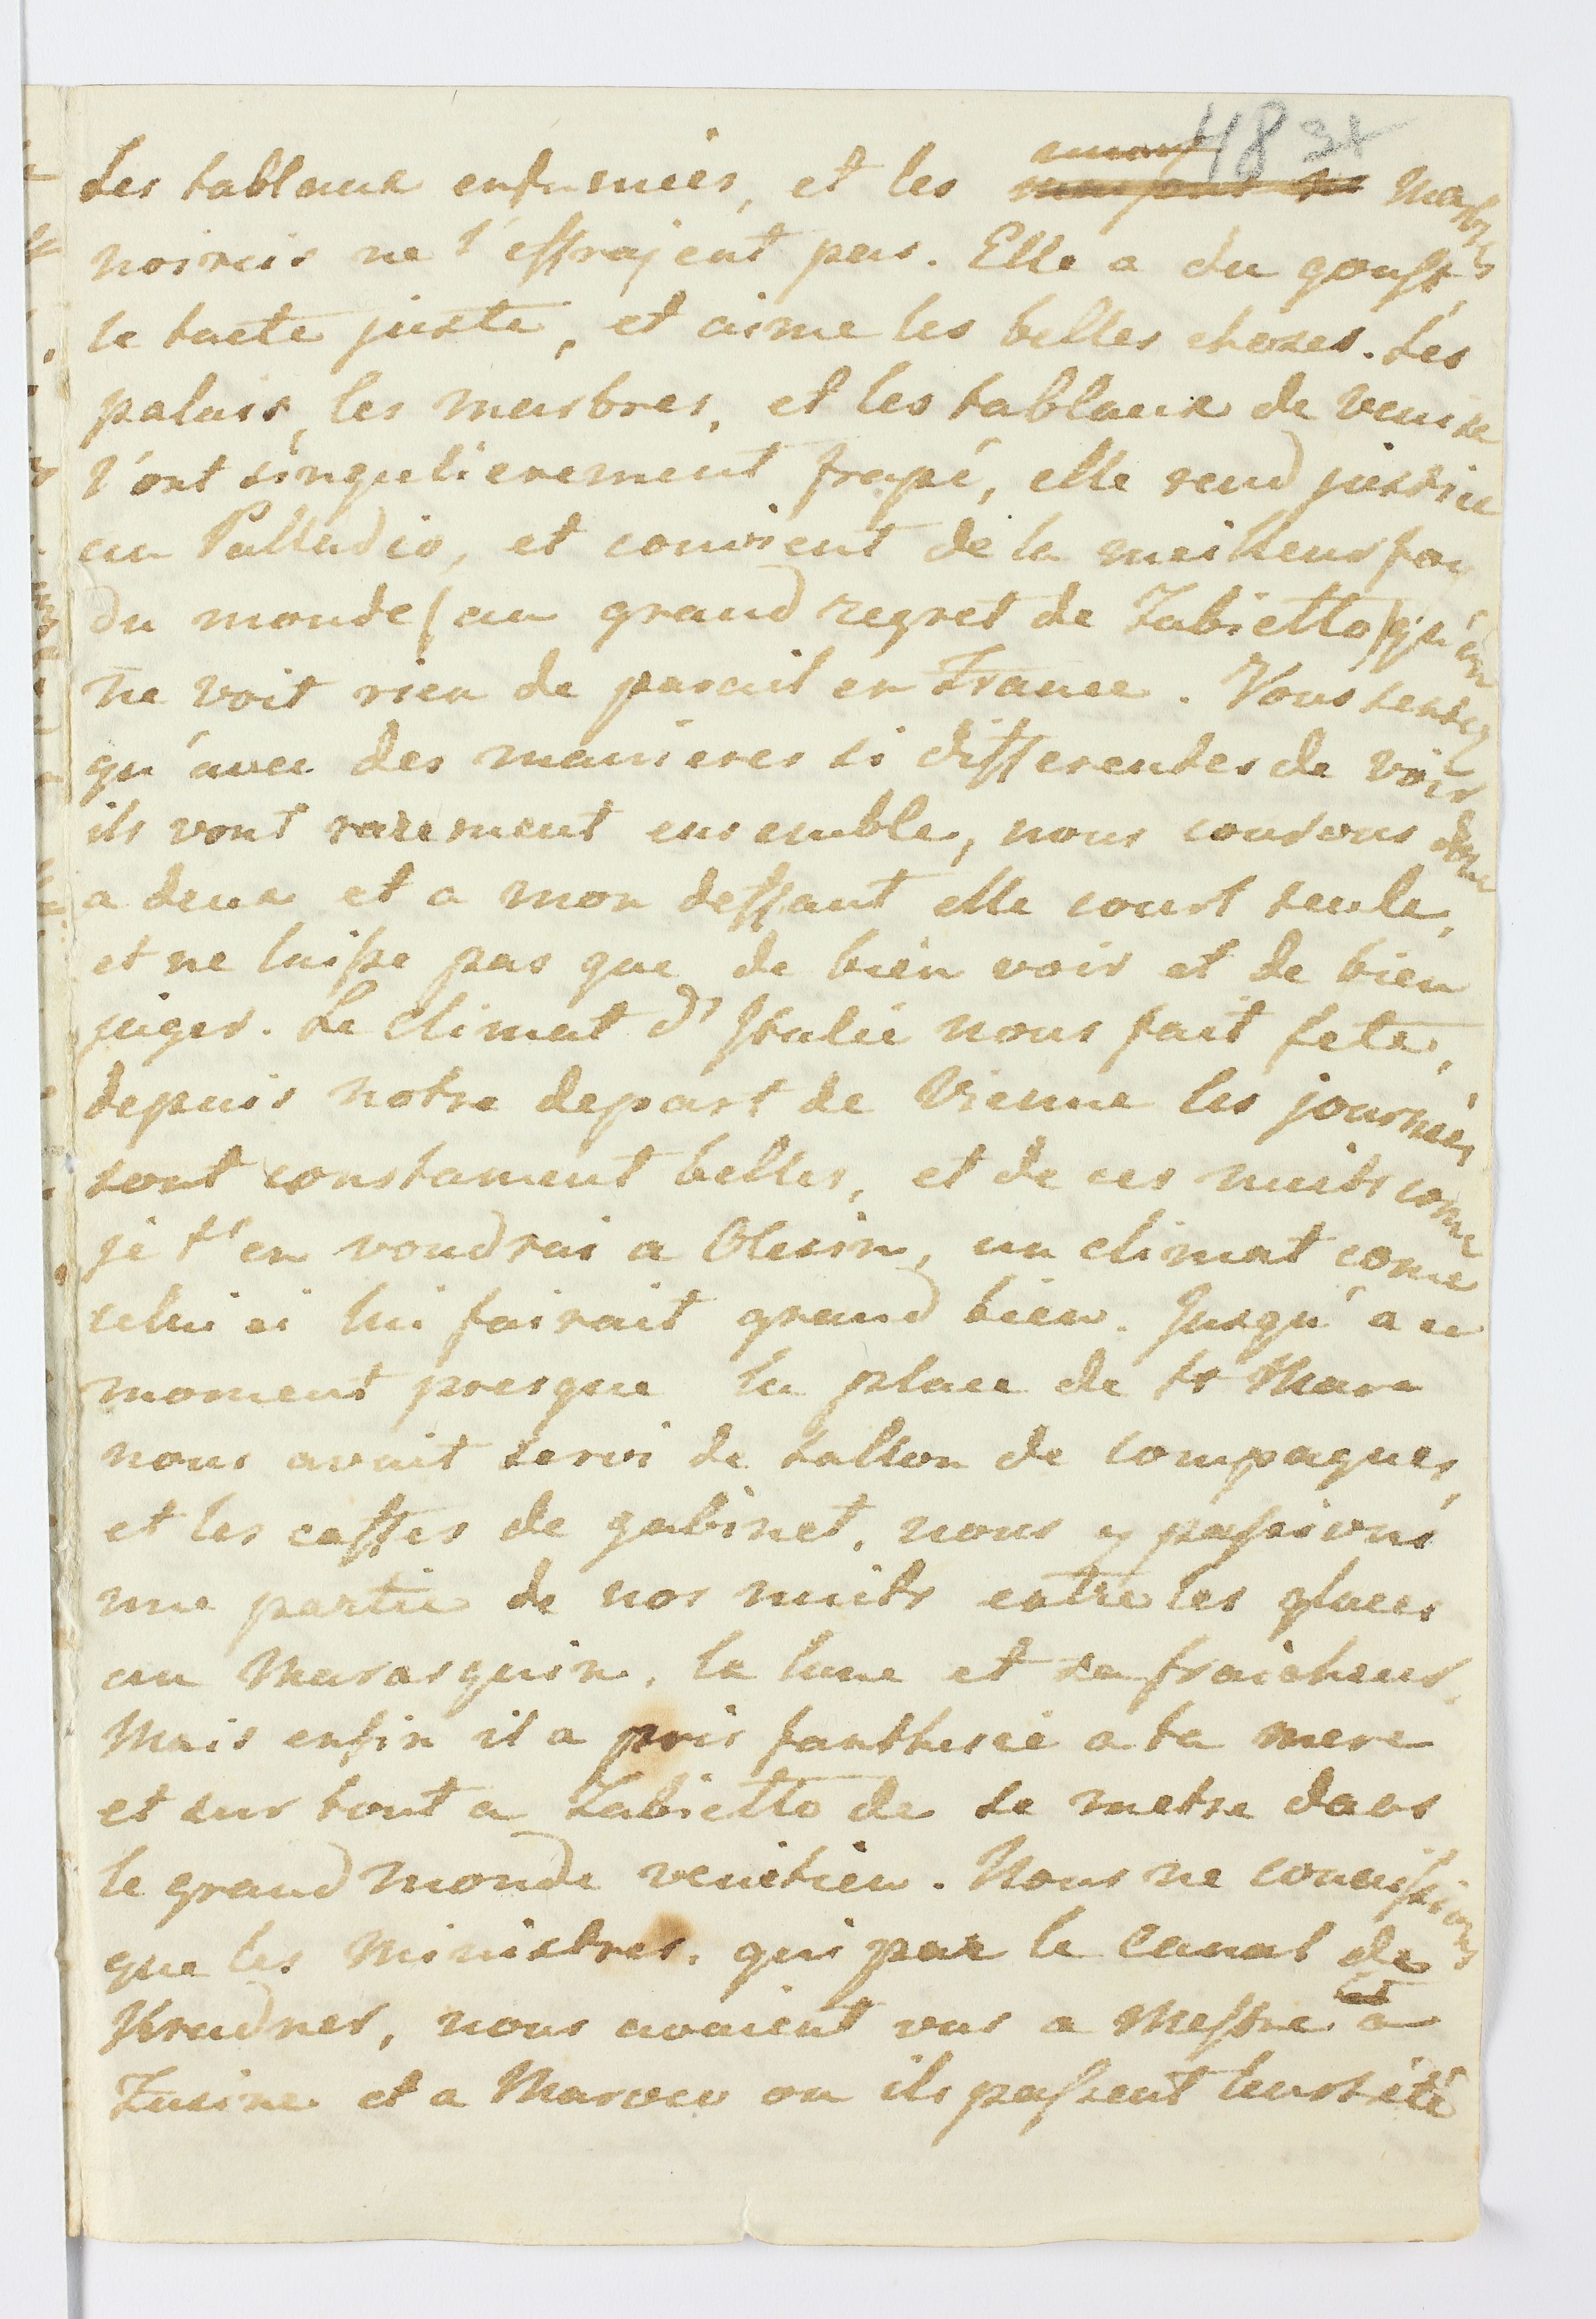 48 31
Les tablaux enfumées, et les marbres
noircis ne l'effrajent pas. Elle a du goust,
le tacte juste, et aime les belles choses. Les
palais, les marbres, et les tablaux de venise
l'ont singulierement frapé, elle rend justice
au Palladio, et convient de la meilleur foy
du monde (au grand regret de Zabietto) qu'on
ne voit rien de pareil en France. Vous sentez
qu'avec des manieres si differentes de voir
ils vont rarement ensemble, nous courons donc
a deux et a mon deffaut elle court seule,
et ne laisse pas que de bien voir et de bien
juger. Le climat d'Italie nous fait fete,
depuis notre depart de Vienne les journées
sont constament belles, et de ces nuits come
je t'en voudrai a Olesin, un climat come
celui ci lui fairait grand bien. Jusqu'a ce
moment presque la place de st Marc
nous avait servi de sallon de compagnes,
et les caffes de gabinet, nous y passions
une partie de nos nuits entre les glaces
au Marasquin, la lune et sa fraicheur,
Mais enfin il a pris fanthesie a ta mere
et sur tout a Zabietto de se metre dans
le grand monde venitien. Nous ne conaissions
que les Ministres, qui par le canal de
Krudner, nous avaient vus a Mestre a
Zusine et a Maroco ou ils passent leurs été